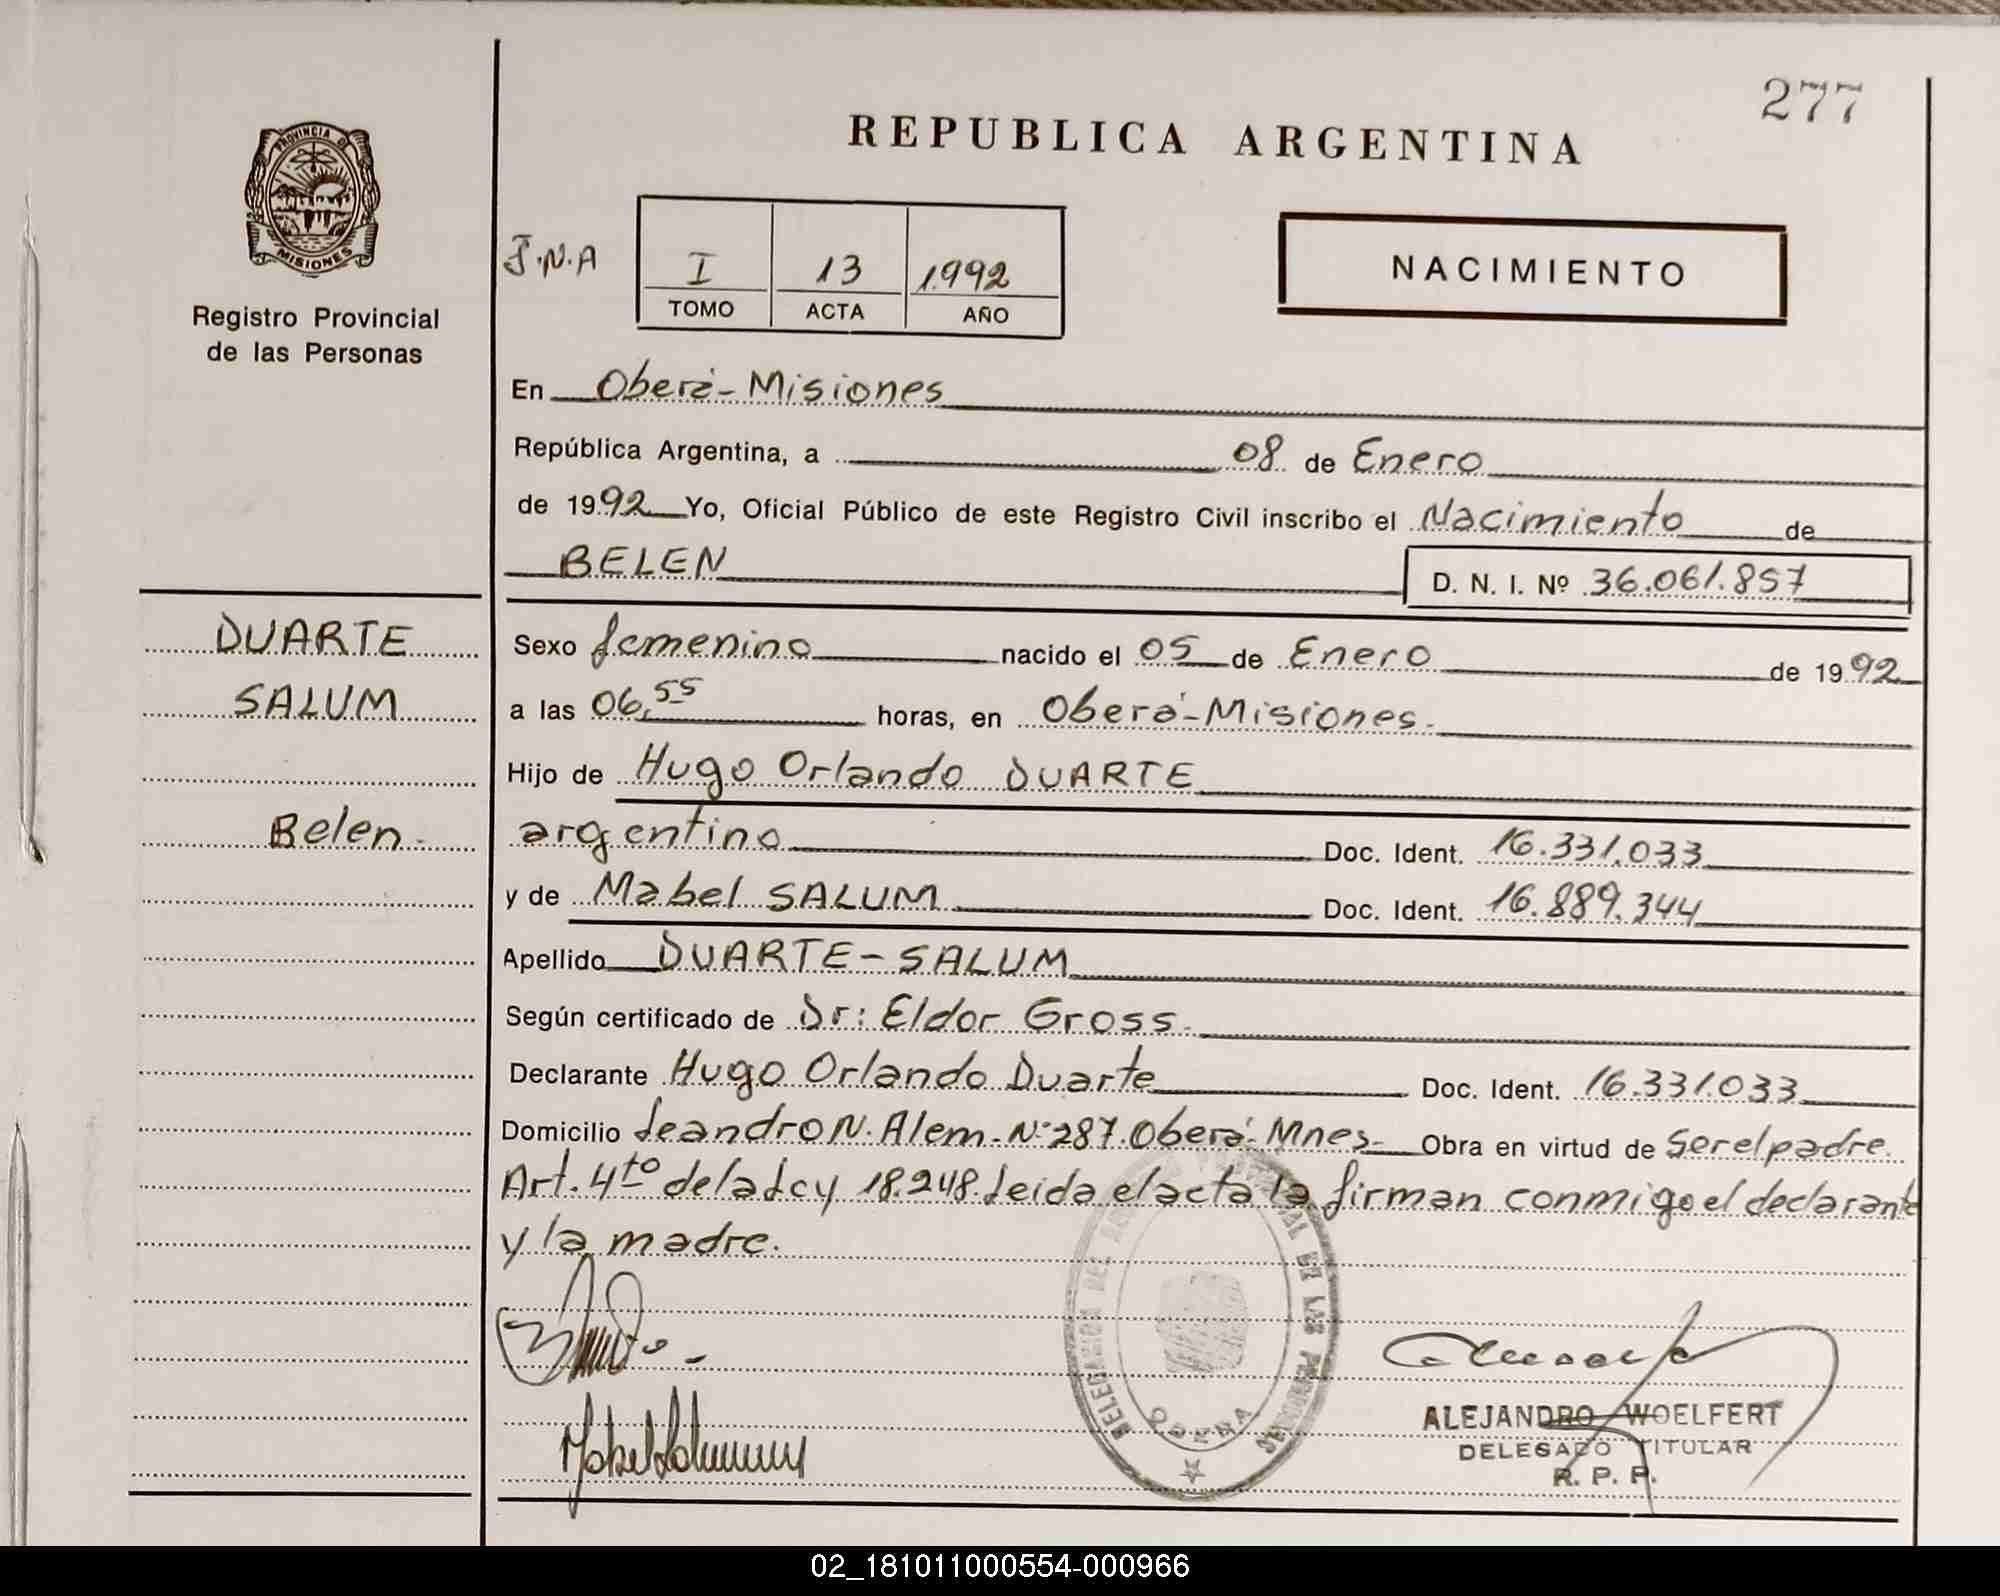 277
REPUBLICA ARGENTINA
PROVINCIA DE
MISIONES
Registro Provincial
de las Personas
J.N.A
I 13 1992
TOMO ACTA AÑO
NACIMIENTO
En Oberá-Misiones
República Argentina, a 08 de Enero
de 1992 Yo, Oficial Público de este Registro Civil inscribo el Nacimiento de
BELEN D. N. I. Nº 36.061.857
DUARTE
SALUM
Belen.
Sexo femenino nacido el 05 de Enero de 1992
a las 06,55 horas, en Oberá-Misiones.
Hijo de Hugo Orlando DUARTE
argentino Doc. Ident. 16.331.033
y de Mabel SALUM Doc. Ident. 16.889.344
Apellido DUARTE-SALUM
Según certificado de Dr: Eldor Gross.
Declarante Hugo Orlando Duarte Doc. Ident. 16.331.033
Domicilio Leandro N. Alem-Nº287.Oberá-Mnes- Obra en virtud de Ser el padre.
Art. 4to de la Ley 18.248. Leida el acta la firman conmigo el declarante
y la madre.
DELEGACION DEL PROVINCIAL DE LAS PERSONAS
OBERA
Mabel Salum
ALEJANDRO WOELFERT
DELEGADO TITULAR
R. P. P.
02_181011000554-000966